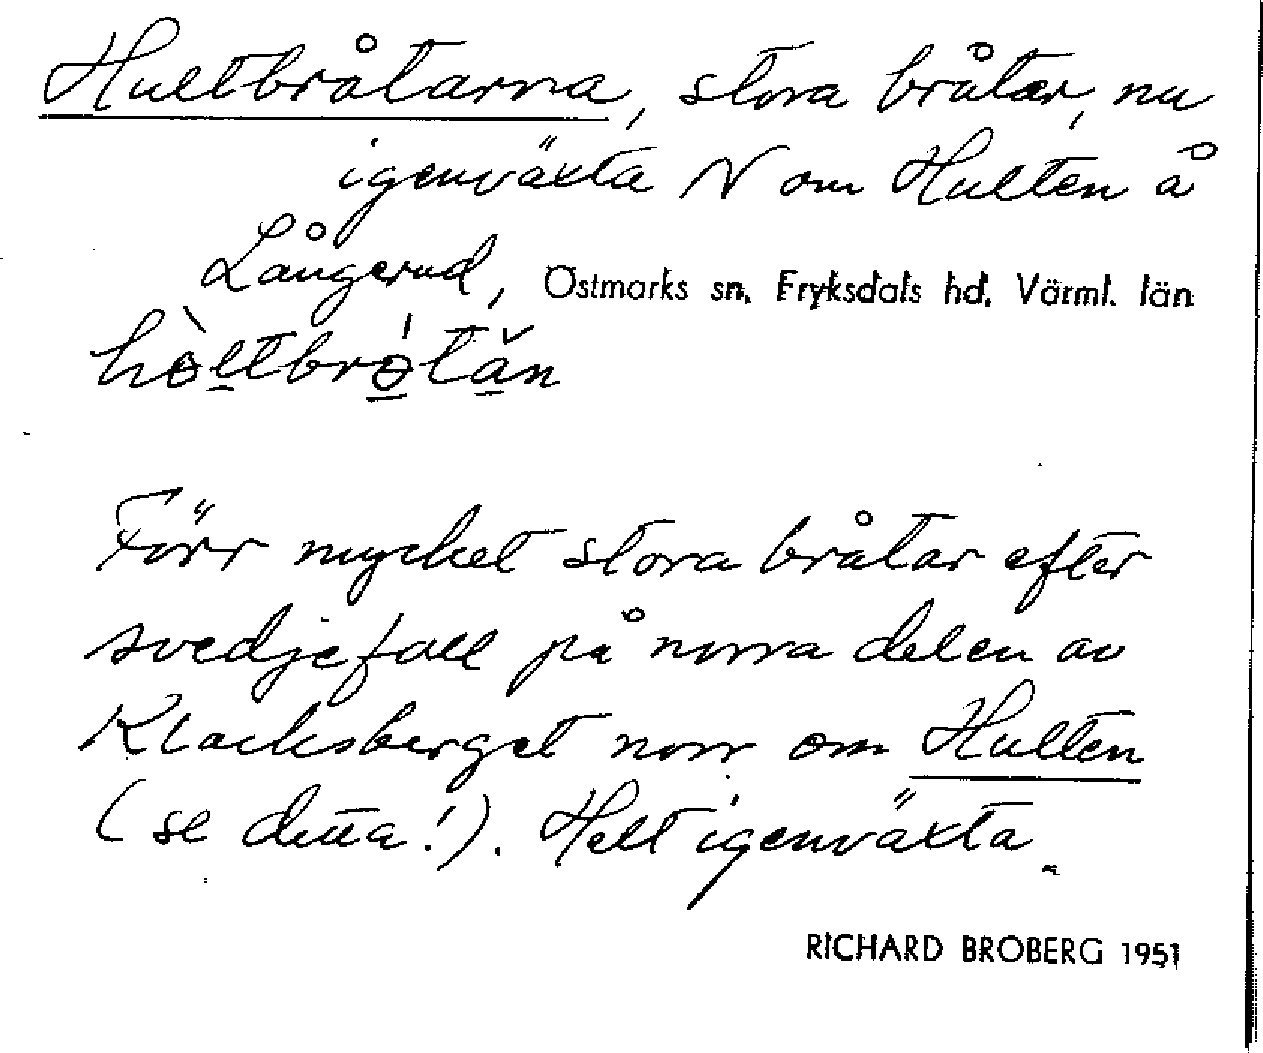 Hultbråtarna, stora bråtar, nu
igenväxta N om Hulten å
Långerud, Östmarks sn. Fryksdals hd. Värml. län
hòltbrótăn
Förr mycket stora bråtar efter
svedjefall på norra delen av
Klacksberget norr om Hulten
(se detta!). Helt igenväxta.
RICHARD BROBERG 1951